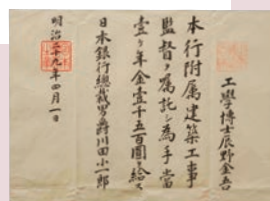 工學博士辰野金吾
本行附属建築工事
監督ヲ嘱託シ為手當
壹ヶ年金壹千五百圓ヲ給ス
日本銀行總裁男爵川田小一郎
明治廿九年四月一日